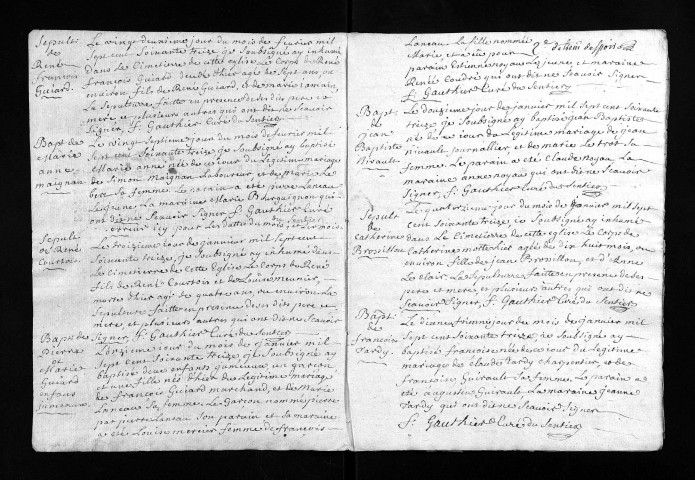 Sepult
de
René
françois
Guiard.
Le vingt deuxieme jour du mois de fevrier mil
Sept cent Soixante treize, je Soubsigné ay inhumé
dans le Cimetierre de cette eglise Le Corps de René
François Guiard decedé d'hier agé de Sept ans, ne
fils de René Guiard, et de marie
La Sepulture faitte en presence desdits pere et
mere et plusieurs autres qui ont dit ne Scavoir
Signer. f. Gauthier Curé du Sentier
Bapt de
Marie
anne
maignan
Le vingt Septieme jour du mois de fevrier mil
Sept cent Soixante treize, je Soubsigné ay baptisé
Marie anne née de ce jour du legitime mariage
de Simon Maignan Laboureur et de Marie Le
ber Sa femme. Le parain a eté pierre Laneau
La maraine Marie Bourguignon qui
ont dit ne Scavoir Signer f. Gauthier Curé
erreur icy pour les dattes du mois
Sepult
de René
Courtois
Le treizieme jour de janvier mil Sept cent
Soixante treize, je Soubsigné ay inhumé dans
Le Cimetierre de cette Eglise Le Corps de René
fils de René Courtois et de Louise meunier,
morte d'hier agé de quatre ans, ou environ La
Sepulture faitte en presence desdits pere et
mere, et plusieurs autres qui ont dit ne Scavoir
Signer, f. Gauthier Curé du Sentier
Bapt de
Pierre
et Marie
Guiard
enfans
jumeaux
L'onzieme jour du mois de janvier mil
Sept cent Soixante treize, je Soubsigné ay
baptisé deux enfants gumeaux un garçon
et une fille nés d'hier du legitime mariage
de François Guiard marchand, et de Marie
Laneau Sa femme. Le Garçon nommé pierre
par pierre Laneau Son parain et Sa maraine
a eté Louise mercier femme de françois
Laneau La fille nommée
Marie et a eu pour
parain Estienne noyau Le jeune, et maraine
Renée Coudré qui ont dit ne Scavoir Signer
f. Gauthier Curé du Sentier
Bapt
de
jean
Baptiste
Nivault
Le douzieme jour de janvier mil Sept cent Soixante
treize je Soubsigné ay baptisé jean Baptiste
né de ce jour du Legitime mariage de jean
nivault journallier et de marie Le trot Sa
femme. Le parain a eté Claude noyau La
maraine anne noyau qui ont dit ne Scavoir
Signer, f. Gauthier Curé du Sentier
Sepult
de
Catherine
Brossillon
Le quatorzieme jour du mois de janvier mil Sept
cent Soixante treize, je Soubsigné ay inhumé
dans le Cimetierre de cette eglise Le Corps de
Catherine morte hier agée de dix huit mois, ou
environ fille de jean Brossillon, et d'Anne
Le clair. La Sepulture faitte en presence de ses
pere et mere, et plusieurs autres qui ont dit ne
Scavoir Signer, f. Gauthier Curé du Sentier
Bapt
de
francoise
Tardy.
Le dix neuvieme jour du mois de janvier mil
Sept cent Soixante treize, je Soubsigné ay
baptisé francoise née de ce jour du Legitime
mariage de Claude Tardy charpentier, et de
francoise Guirault Sa femme. Le parain a
eté augustin Guirault La maraine jeanne
Tardy qui ont dit ne Scavoir Signer
f. Gauthier Curé du Sentier